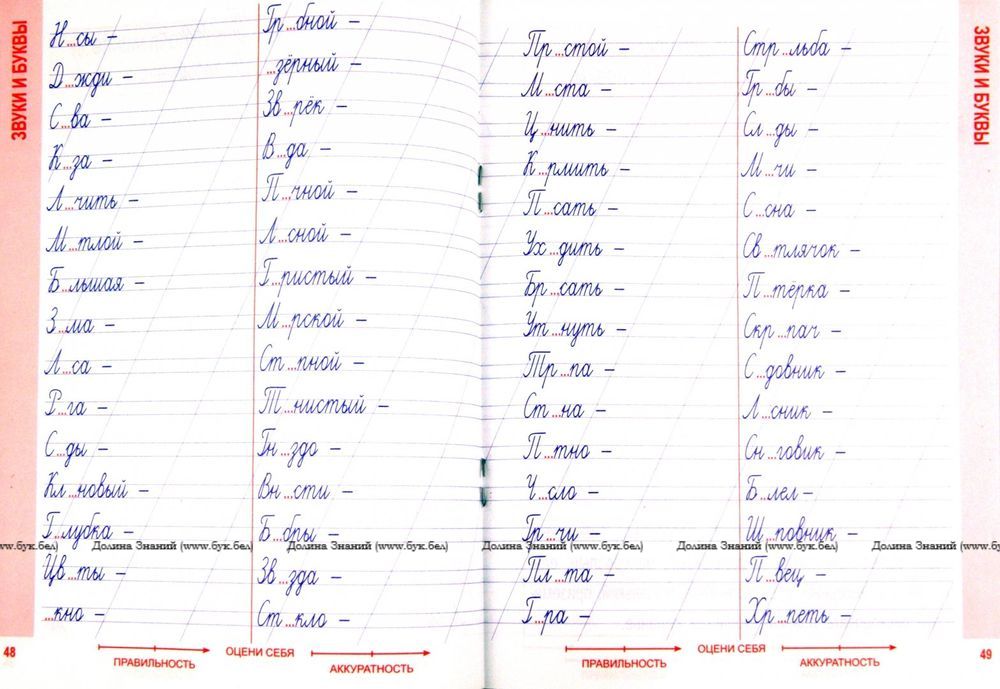 ЗВУКИ И БУКВЫ
Н...сы –
Д...жди –
С...ва –
К...за –
Л...чить –
М...тлой –
Б...льшая –
З...ма –
Л...са –
Р...га –
С...ды –
Кл...новый –
Г...лубка –
Цв...ты –
...кно –
Гр...бной –
...зёрный –
Зв...рёк –
В...да –
П...чной –
Л...сной –
Г...ристый –
М...рской –
Ст...пной –
Т...нистый –
Гн...здо –
Вн...сти –
Б...бры –
Зв...зда –
Ст...кло –
Пр...стой –
М...ста –
Ц...нить –
К...рмить –
П...сать –
Ух...дить –
Бр...сать –
Ут...нуть –
Тр...па –
Ст...на –
П...тно –
Ч...сло –
Гр...чи –
Пл...та –
Г...ра –
Стр...льба –
Гр...бы –
Сл...ды –
М...чи –
С...сна –
Св...тлячок –
П...тёрка –
Скр...пач –
С...довник –
Л...сник –
Сн...говик –
Б...лел –
Ш...повник –
П...вец –
Хр...петь –
ЗВУКИ И БУКВЫ
www.бук.бел) Долина Знаний (www.бук.бел) Долина Знаний (www.бук.бел) Долина Знаний (www.бук.бел) Долина Знаний (www.бук.бел) Долина Знаний (www.б
48
ПРАВИЛЬНОСТЬ
ОЦЕНИ СЕБЯ
АККУРАТНОСТЬ
ПРАВИЛЬНОСТЬ
ОЦЕНИ СЕБЯ
АККУРАТНОСТЬ
49